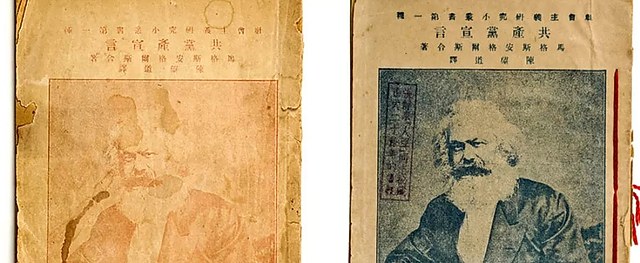 社會主義研究小叢書第一種
共黨產宣言
馬格斯安格爾斯合著
陳望道譯
社會主義研究小叢書第一種
共產黨宣言
馬格斯安格爾斯合著
陳望道譯